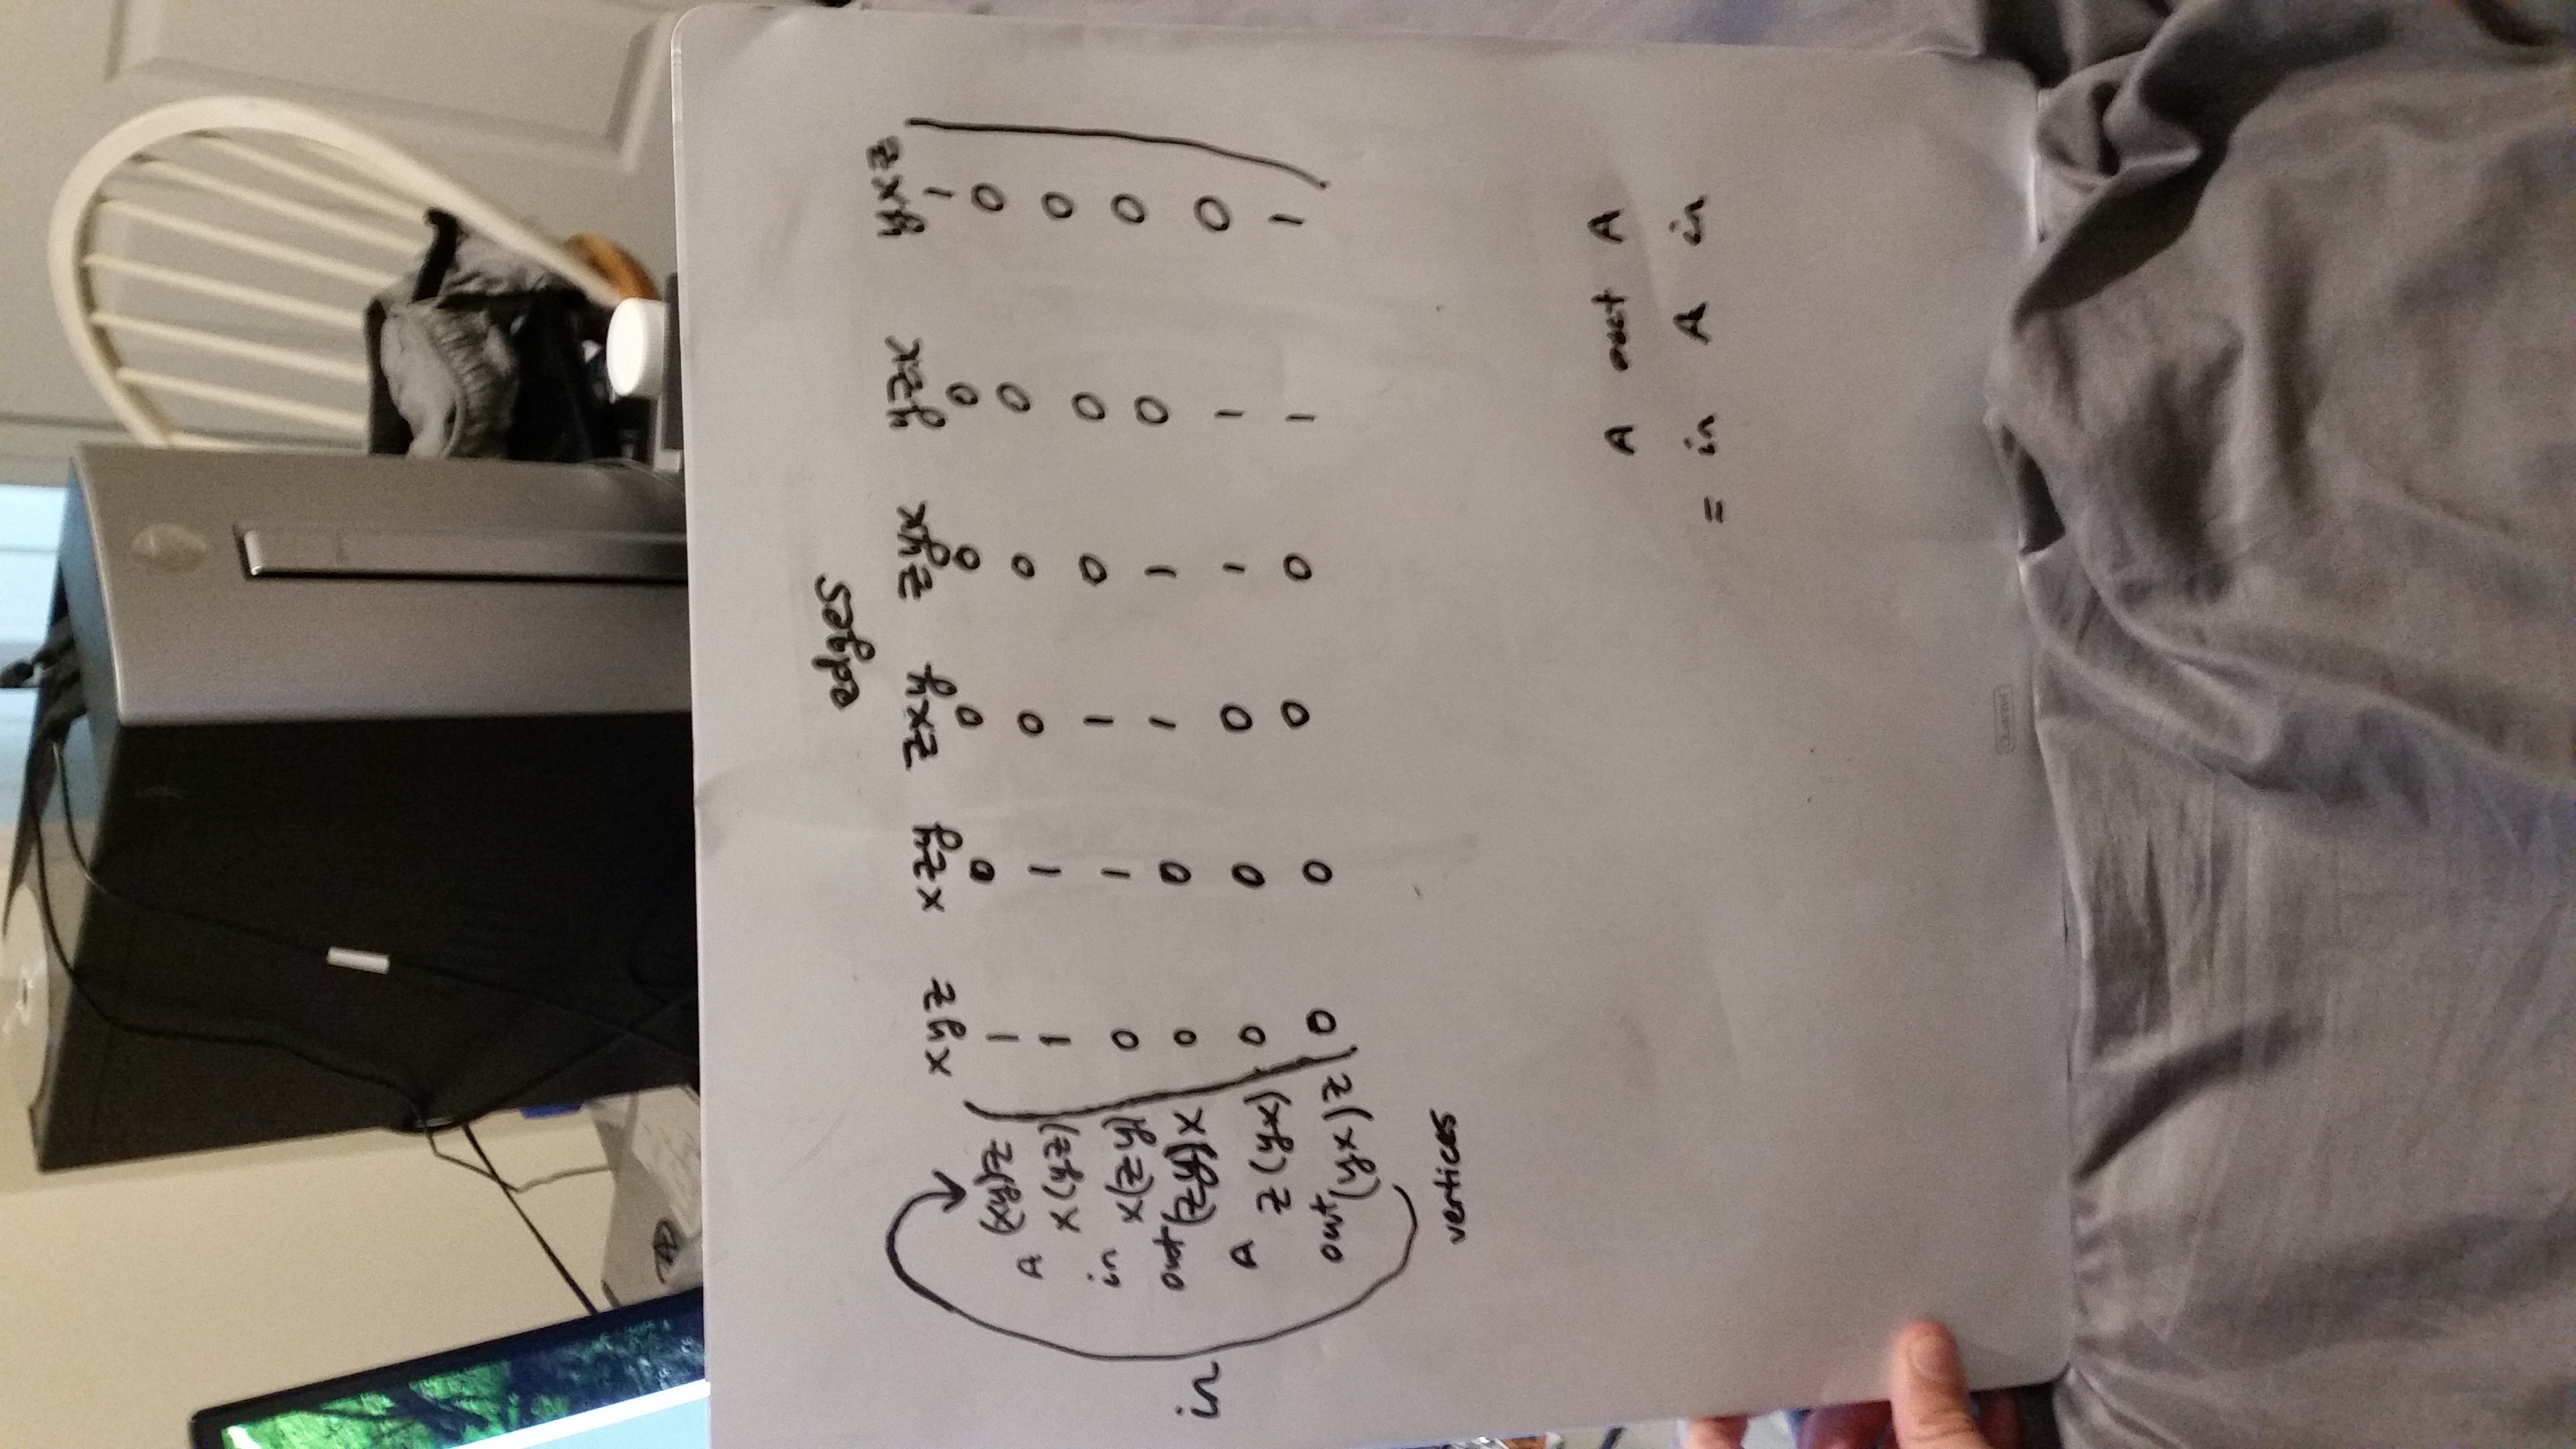 edges
xyz xzy zxy zyx yzx yxz
(xy)z 1 0 0 0 0 1
A
x(yz) 1 1 0 0 0 0
in
x(zy) 0 1 1 0 0 0
out
(zy)x 0 0 1 1 0 0
A
z(yx) 0 0 0 1 1 0
out
(yx)z 0 0 0 0 1 1
in
vertices
A out A
= in A in
Quartet